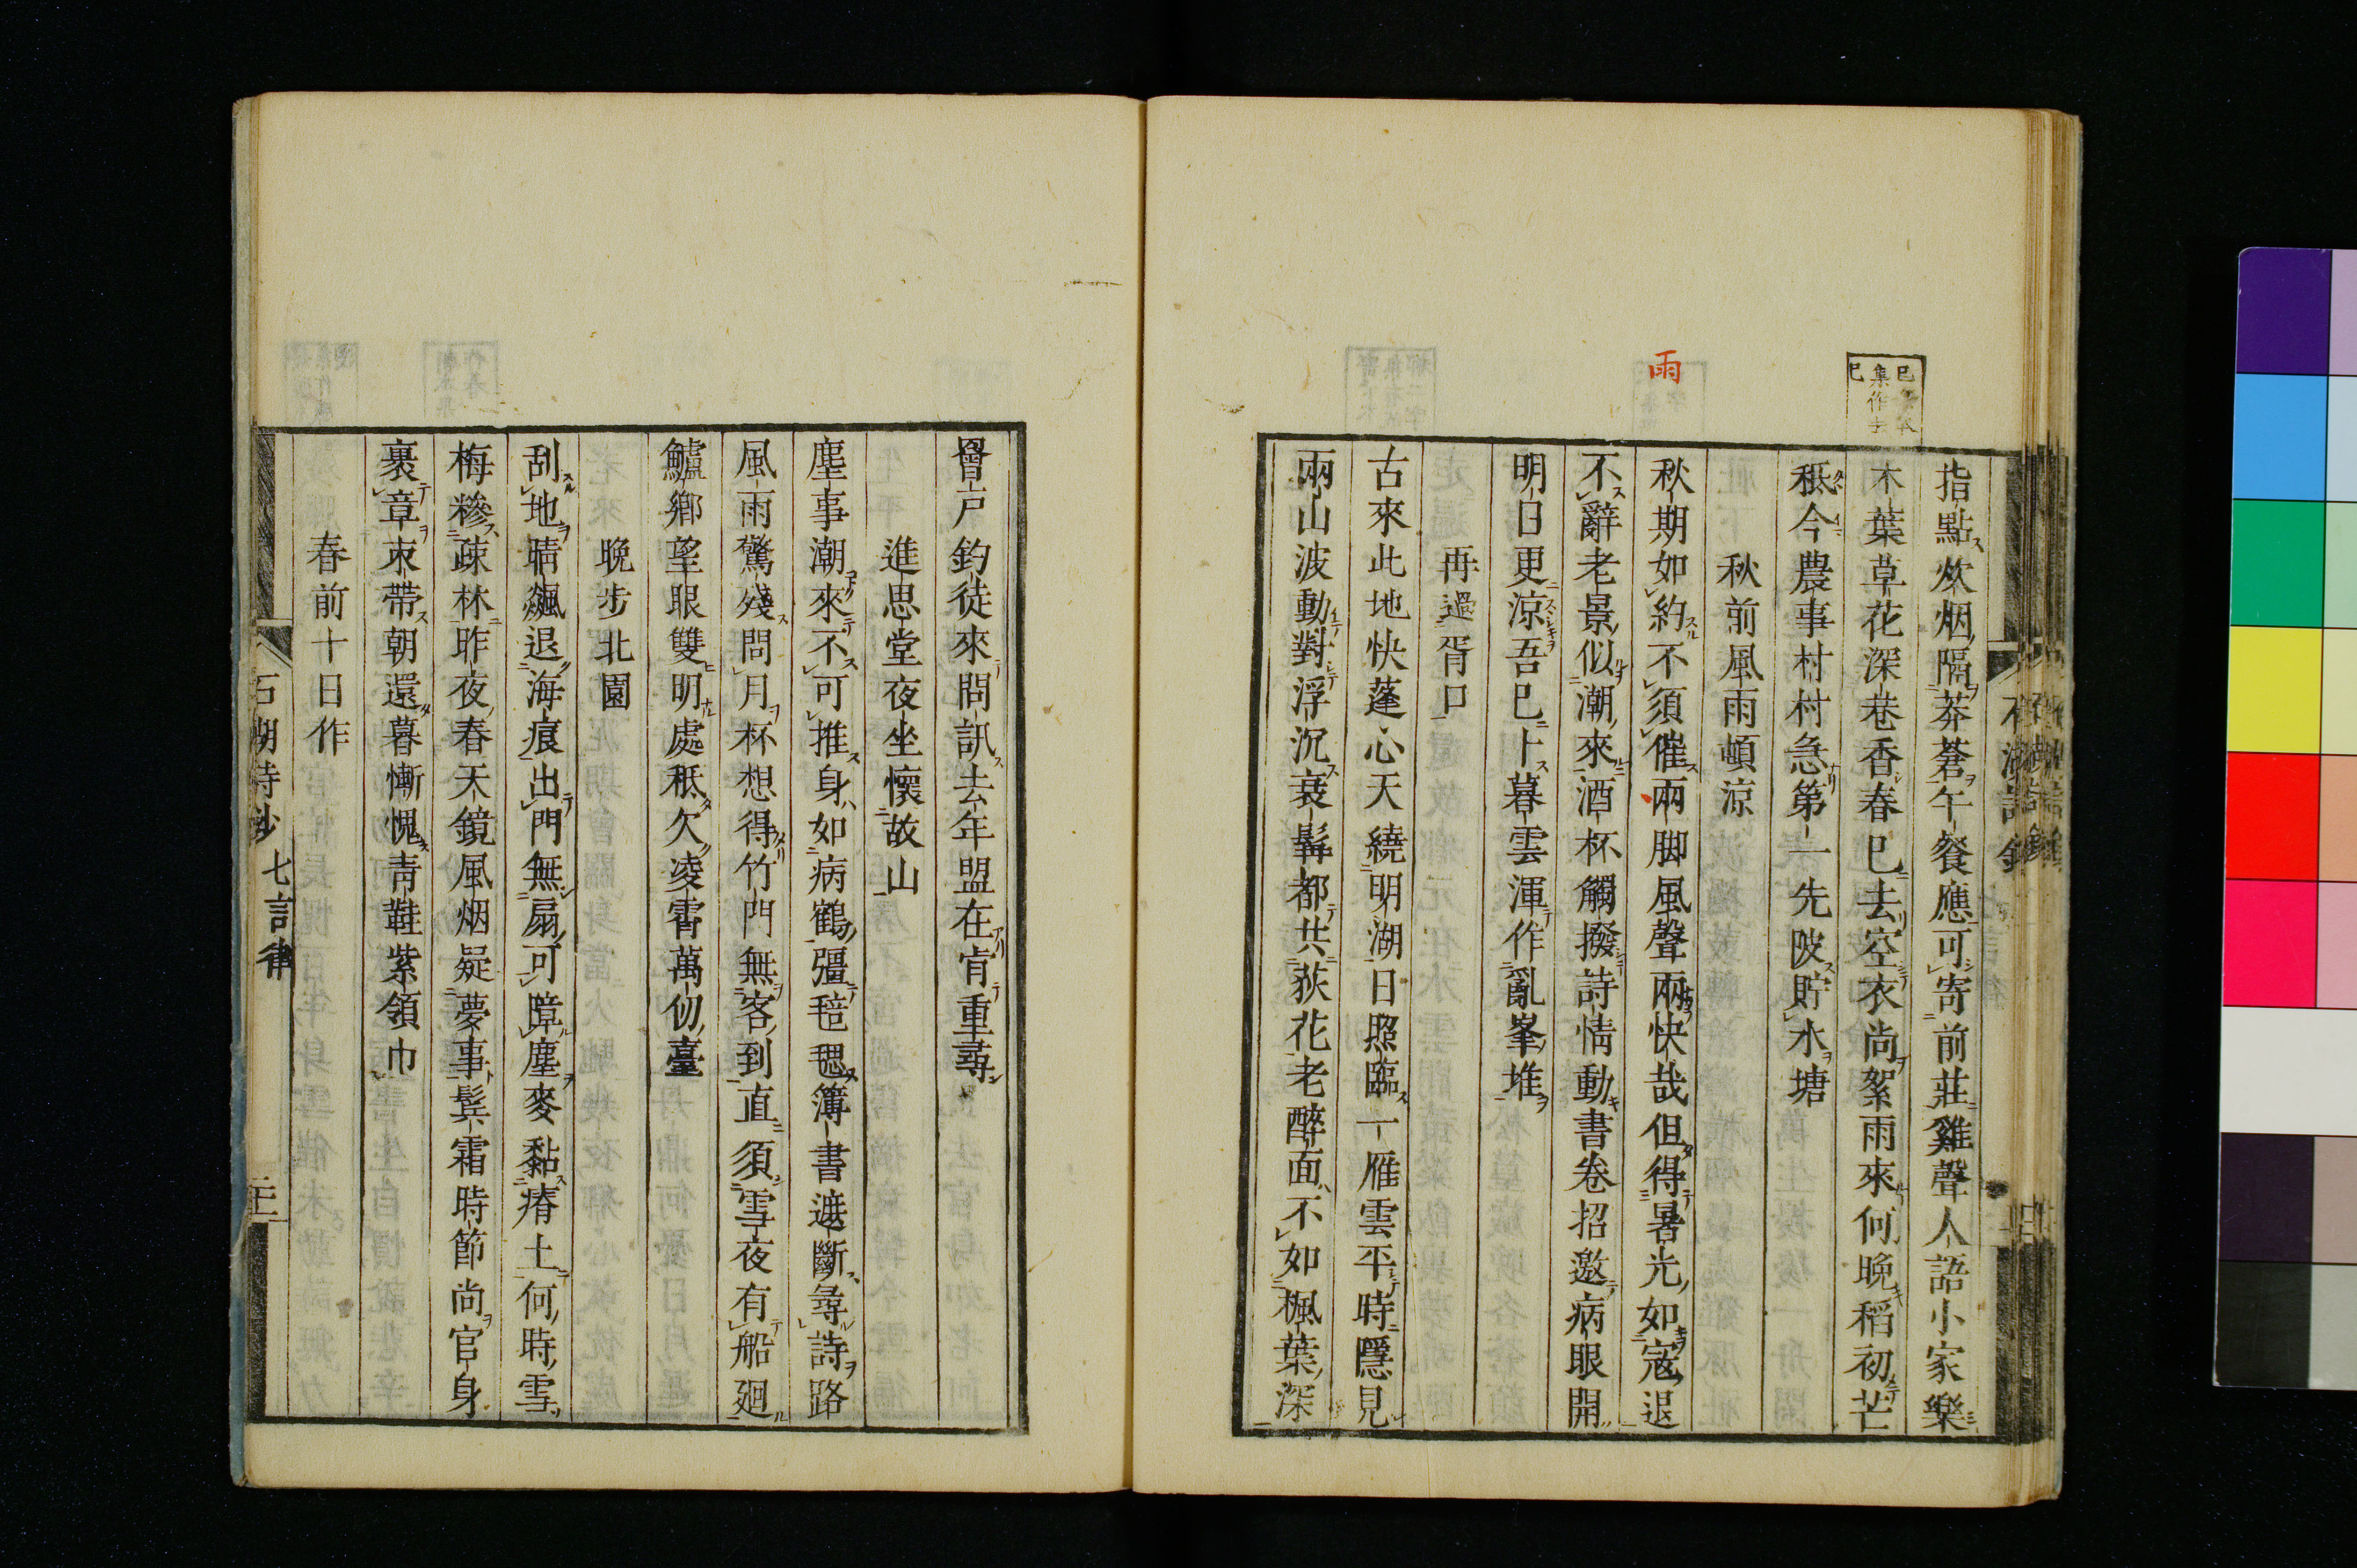 雨
指點炊烟隔莽蒼午餐應可寄前莊雞聲人語小家樂
木葉草花深巷香春巳去空衣尚絮雨來何晚稻初芒
秪今農事村村急第一先陂貯水塘
秋前風雨頓涼
秋期如約不須催兩脚風聲兩快哉但得暑光如寇退
不辭老景似潮來酒杯觸撥詩情動書卷招邀病眼開
明日更涼吾巳卜暮雲渾作亂峯堆
再過胥口
古來此地快蓬心天繞明湖日照臨一雁雲平時隱見
兩山波動對浮沉衰髯都共荻花老醉面不如楓葉深
罾戶釣徒來問訊去年盟在肯重尋
進思堂夜坐懷故山
塵事潮來不可推身如病鶴彊毰毸簿書遮斷尋詩路
風雨驚殘問月杯想得竹門無客到直須雪夜有船廻
鱸鄉望眼雙明處秪欠凌霄萬仞臺
晚步北園
刮地晴飆退海痕出門無扇可障塵麥黏瘠土何時雪
梅糝疎林昨夜春天鏡風烟疑夢事鬂霜時節尚官身
裹章束帶朝還暮慚愧青鞋紫領巾
春前十日作
石湖詩鈔 七言律